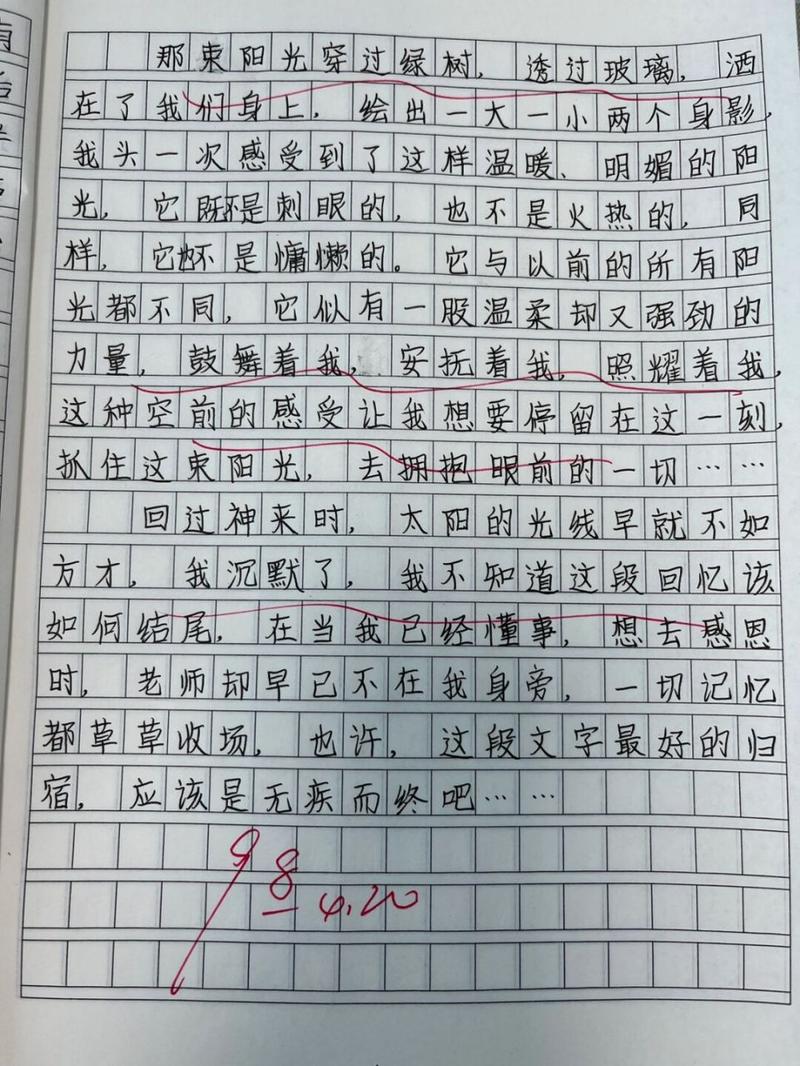 那束阳光穿过绿树，透过玻璃，洒
在了我们身上，绘出一大一小两个身影，
我头一次感受到了这样温暖、明媚的阳
光，它既不是刺眼的，也不是火热的，同
样，它也不是慵懒的。它与以前的所有阳
光都不同，它似有一股温柔却又强劲的
力量，鼓舞着我，安抚着我，照耀着我，
这种空前的感受让我想要停留在这一刻，
抓住这束阳光，去拥抱眼前的一切……
回过神来时，太阳的光线早就不如
方才，我沉默了，我不知道这段回忆该
如何结尾，在当我已经懂事，想去感恩
时，老师却早已不在我身旁，一切记忆
都草草收场，也许，这段文字最好的归
宿，应该是无疾而终吧……
98
4.20